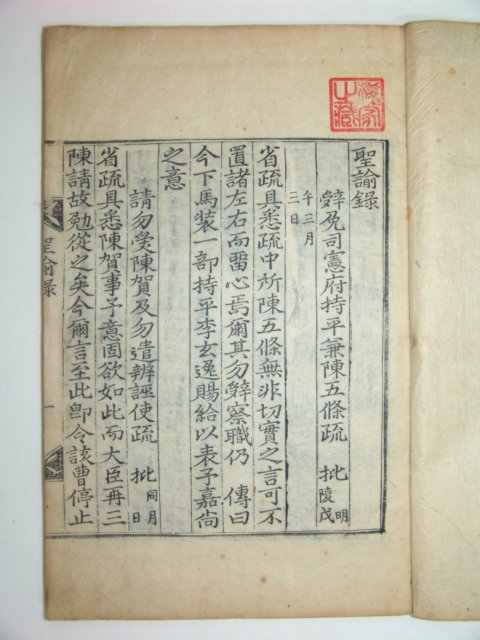 聖諭錄
辭免司憲府持平兼陳五條疏 批 明陵戊
午三月三日
省疏具悉疏中所陳五條無非切實之言可不
置諸左右而留心焉爾其勿辭察職仍 傳曰
今下馬裝一部持平李玄逸賜給以表予嘉尚
之意
請勿受陳賀及勿遣辨誣使疏 批 同月日
省疏具悉陳賀事予意固欲如此而大臣再三
陳請故勉從之矣今爾言至此卽令該曹停止
聖諭錄 一